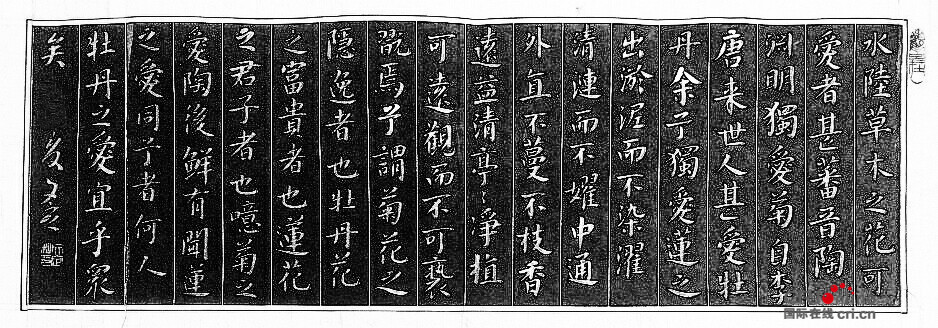 水陸草木之花可
愛者甚蕃晉陶
淵明獨愛菊自李
唐来世人甚愛牡
丹余予獨愛蓮之
出淤泥而不染濯
清漣而不嬥中通
外直不蔓不枝香
遠益清亭〻淨植
可遠觀而不可褻
翫焉予謂菊花之
隱逸者也牡丹花
之富貴者也蓮花
之君子者也噫菊之
愛陶後鮮有聞蓮
之愛同予者何人
牡丹之愛宜乎眾
矣
国际在线 cri.cn